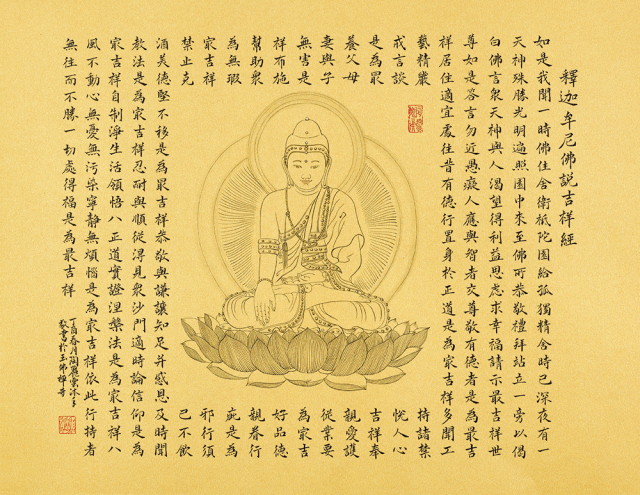 釋迦牟尼佛説吉祥經
如是我聞一時佛住舍衛祇陀園給孤獨精舍時已深夜有一
天神殊勝光明遍照園中來至佛所恭敬禮拜站立一旁以偈
白佛言眾天神與人渴望得利益思慮求幸福請示最吉祥世
尊如是答言勿近愚癡人應與智者交尊敬有德者是為最吉
祥居住適宜處往昔有德行置身於正道是為冣吉祥多聞工
藝精嚴持諸禁
戒言談悦人心
是為冣吉祥奉
養父母親愛護
妻與子從業要
無害是為冣吉
祥布施好品德
幫助眾親眷行
為無瑕疵是為
冣吉祥邪行須
禁止克己不飲
酒美德堅不移是為最吉祥恭敬與謙讓知足并感恩及時聞
教法是為冣吉祥忍耐與順從得見眾沙門適時論信仰是為
冣吉祥自制淨生活領悟八正道實證涅槃法是為冣吉祥八
風不動心無憂無污染寧靜無煩惱是為冣吉祥依此行持者
無往而不勝一切處得福是為最吉祥
丁酉春月陶麗雲沐手
敬書於玉佛禪寺